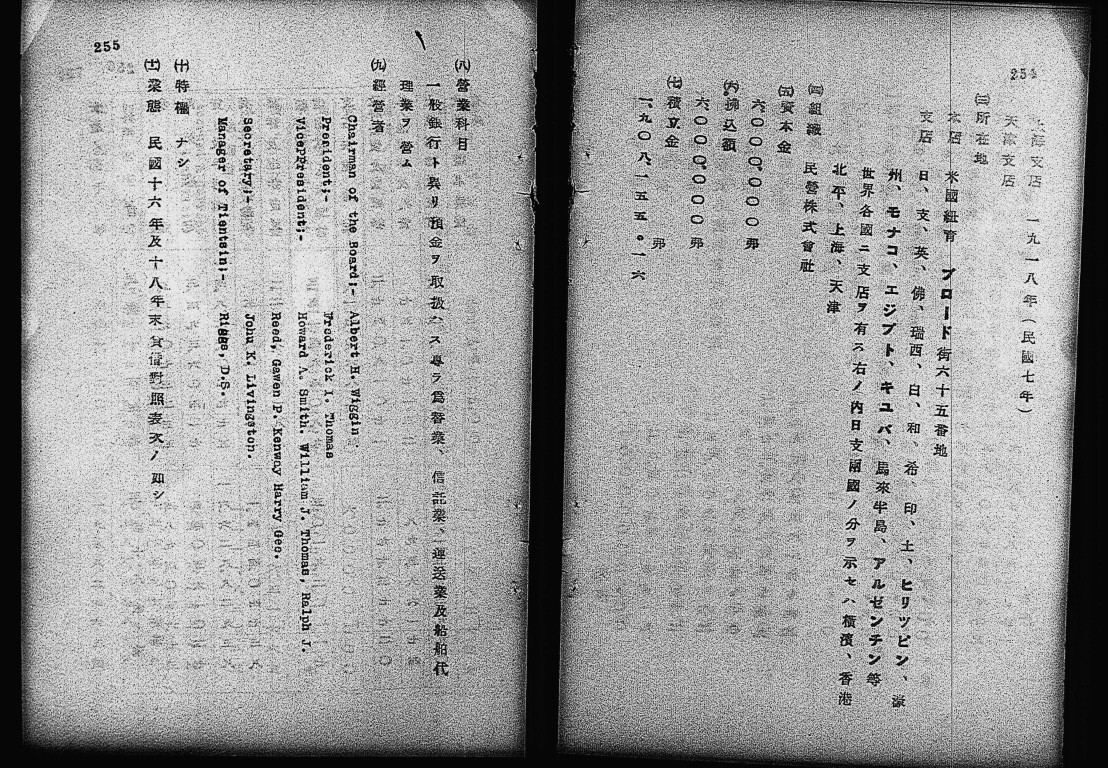 254
上海支店 一九一八年(民國七年)
天津支店
(三)所在地
本店 米國紐育 ブロード街六十五番地
支店 日、支、英、佛、瑞西、白、和、希、印、土、ヒリッピン、濠
州、モナコ、エジプト、キユバ、馬來半島、アルゼンチン等
世界各國ニ支店ヲ有ス右ノ内日支兩國ノ分ヲ示セハ橫濱、香港
北平、上海、天津
(四)組織 民營株式會社
(五)資本金
六〇〇〇、〇〇〇弗
(六)拂込額
六〇〇〇、〇〇〇弗
(七)積立金 弗
一、九〇八、一五五。一六
255
(八)營業科目
一般銀行ト異リ預金ヲ取扱ハス專ラ爲替業、信託業、運送業及船舶代
理業ヲ營ム
(九)經營者
Chairman of the Board;- Albert H. Wiggin
President;- Frederick I. Thomas
VicePresident;- Howard A. Smith. William J. Thomas, Ralph J.
Reed, Gawen P. Kenway Harry Geo.
Secretary;- John K. Livingston.
Manager of Tientsin;- Riggs, D.S.
(十)特權 ナシ
(十一)業態 民國十六年及十八年末貸借對照表次ノ如シ